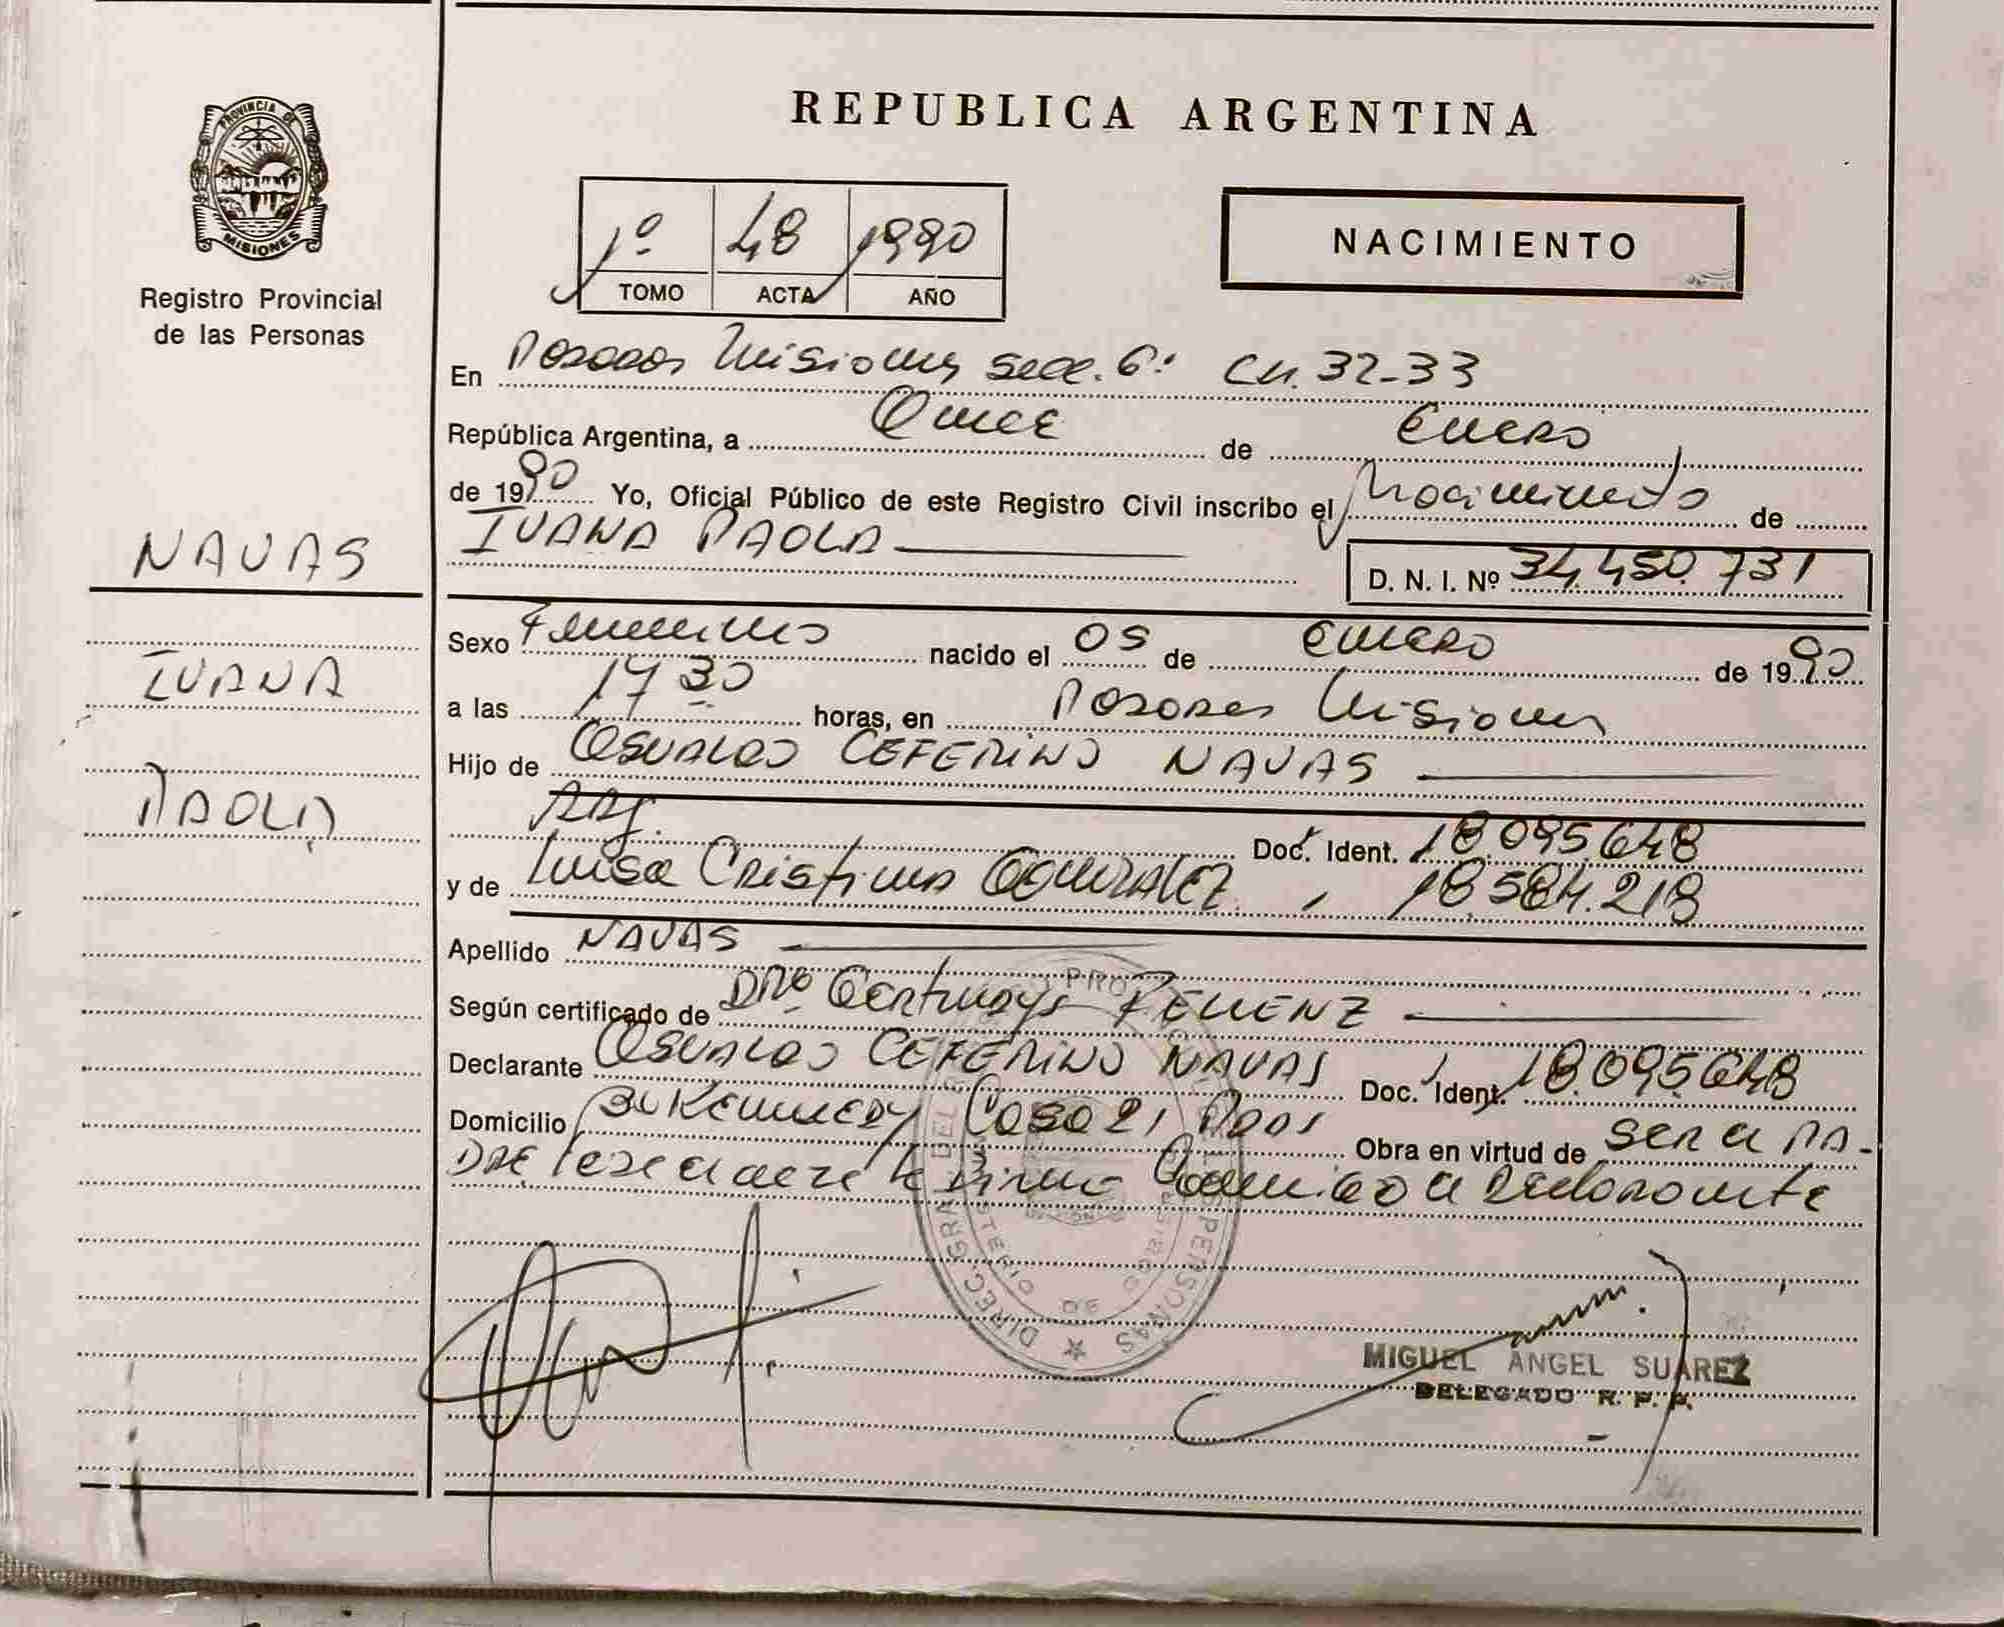 PROVINCIA DE
MISIONES
Registro Provincial
de las Personas
NAVAS
IVANA
PAOLA
REPUBLICA ARGENTINA
1º 48 1990
TOMO ACTA AÑO
NACIMIENTO
En Posadas Misiones Secc. 6ª Ch. 32-33
República Argentina, a Quince de Enero
de 1990 Yo, Oficial Público de este Registro Civil inscribo el Nacimiento de
IVANA PAOLA
D. N. I. Nº 34.450.731
Sexo Femenino nacido el 05 de Enero de 1990
a las 17 30 horas, en Posadas Misiones
Hijo de OSVALDO CEFERINO NAVAS
Arg. Doc. Ident. 18.095.648
y de Luisa Cristina GONZALEZ 18.584.218
Apellido NAVAS
Según certificado de DRA
Declarante OSVALDO CEFERINO NAVAS Doc. Ident. 18.095.648
Domicilio Bº KENNEDY Casa 21 Pdas Obra en virtud de ser el PA-
DRE Leida el acta la firma conmigo el declarante
MIGUEL ANGEL SUAREZ
DELEGADO R. P. P.